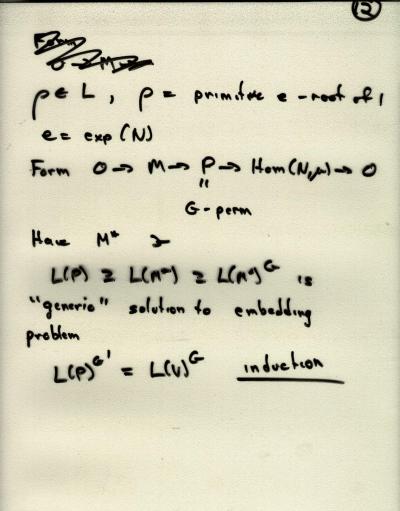 12
ρ ∈ L, ρ = primitive e-root of 1
e = exp(N)
Form 0 → M → P → Hom(N, μ) → 0
"
G-perm
Have M*
L(P) ⊇ L(M*) ⊇ L(M*)^G is
"generic" solution to embedding
problem
L(P)^G' = L(V)^G induction